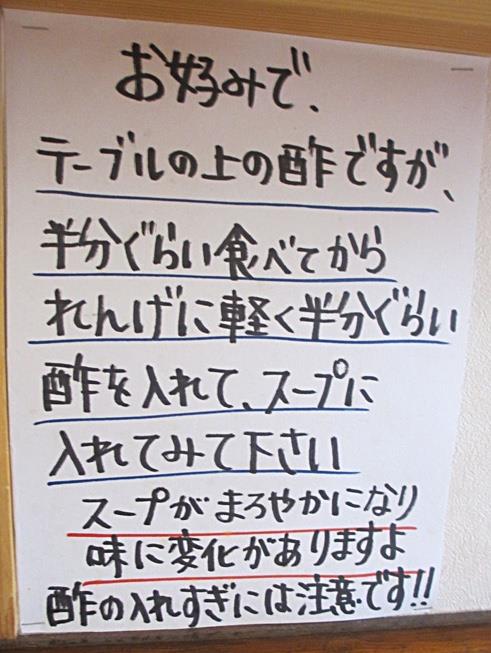 お好みで、
テーブルの上の酢ですが、
半分ぐらい食べてから
れんげに軽く半分ぐらい
酢を入れて、スープに
入れてみて下さい
スープがまろやかになり
味に変化がありますよ
酢の入れすぎには注意です!!